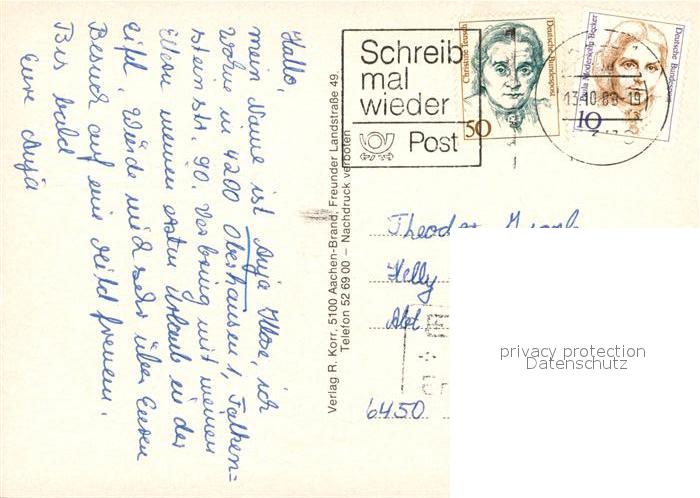 Hallo,
mein Name ist Anja, ich
wohne in 4200 Oberhausen 1, Falken=
steinstr. 90. Verbring mit meinen
Eltern meinen ersten Urlaub in der
Eifel. Würde mich sehr über Euren
Besuch auf ein freuen.
Bis bald
Eure Anja
Verlag R. Korr, 5100 Aachen-Brand, Freunder Landstraße 49,
Telefon 52 69 00 – Nachdruck verboten
Schreib
mal
wieder
Post
Christine Teusch
Deutsche Bundespost
50
Paula Modersohn-Becker
Deutsche Bundespost
10
13.10.88-19
Theodor
Kelly
Abt
6450
privacy protection
Datenschutz